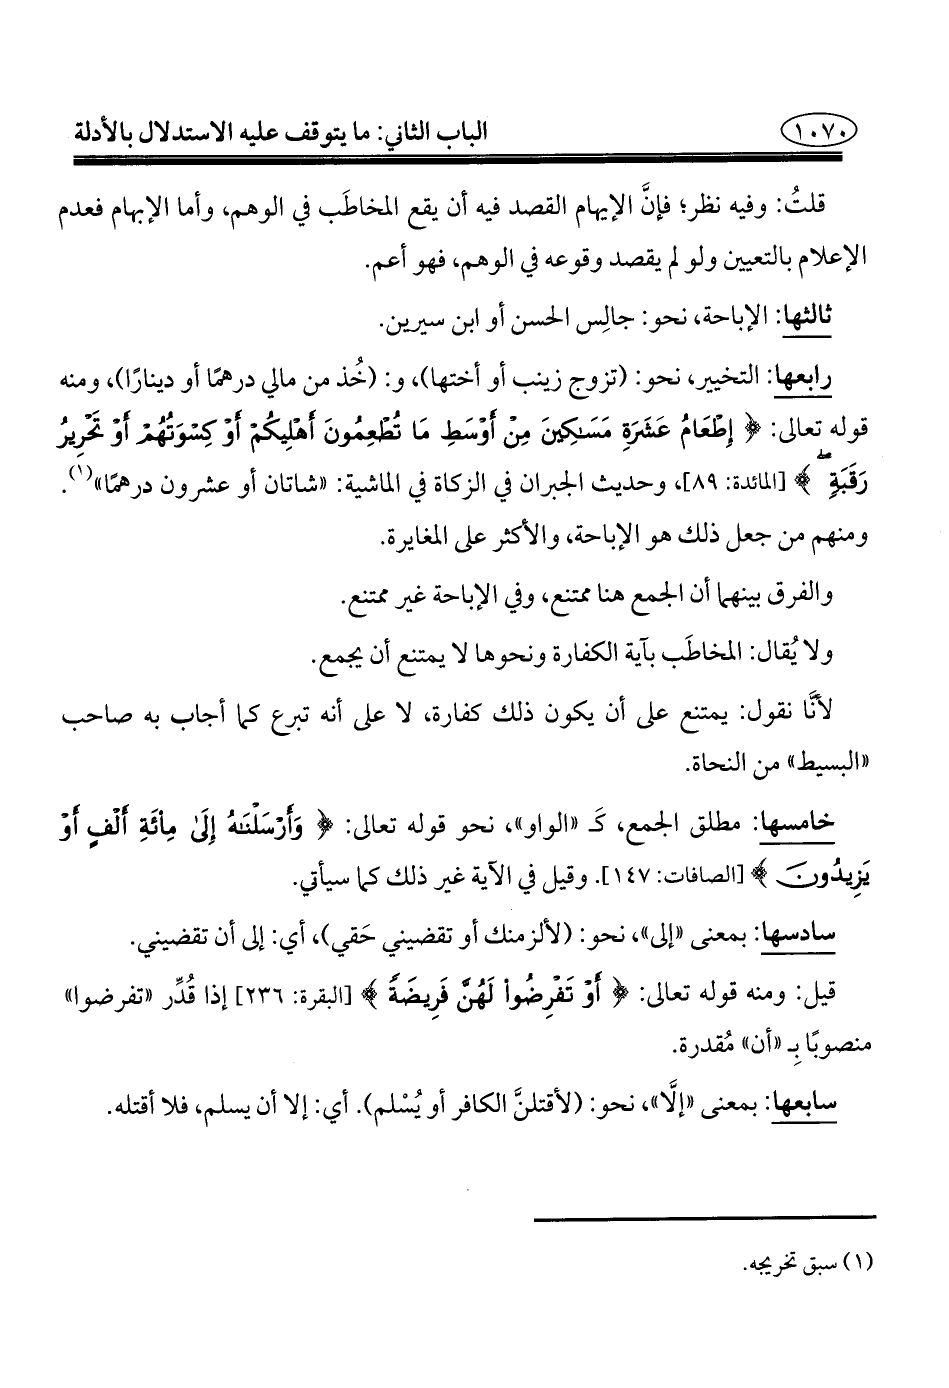 ١٠٧٠ الباب الثاني: ما يتوقف عليه الاستدلال بالأدلة
قلتُ: وفيه نظر؛ فإنَّ الإيهام القصد فيه أن يقع المخاطَب في الوهم، وأما الإبهام فعدم
الإعلام بالتعيين ولو لم يقصد وقوعه في الوهم، فهو أعم.
ثالثها: الإباحة، نحو: جالِس الحسن أو ابن سيرين.
رابعها: التخيير، نحو: (تزوج زينب أو أختها)، و: (خُذ من مالي درهمًا أو دينارًا)، ومنه
قوله تعالى: ﴿ إِطْعَامُ عَشَرَةِ مَسَـٰكِينَ مِنْ أَوْسَطِ مَا تُطْعِمُونَ أَهْلِيكُمْ أَوْ كِسْوَتُهُمْ أَوْ تَحْرِيرُ
رَقَبَةٍ ۖ ﴾ [المائدة: ٨٩]، وحديث الجبران في الزكاة في الماشية: «شاتان أو عشرون درهمًا»(١).
ومنهم من جعل ذلك هو الإباحة، والأكثر على المغايرة.
والفرق بينهما أن الجمع هنا ممتنع، وفي الإباحة غير ممتنع.
ولا يُقال: المخاطَب بآية الكفارة ونحوها لا يمتنع أن يجمع.
لأنَّا نقول: يمتنع على أن يكون ذلك كفارة، لا على أنه تبرع كما أجاب به صاحب
«البسيط» من النحاة.
خامسها: مطلق الجمع، كَـ «الواو»، نحو قوله تعالى: ﴿ وَأَرْسَلْنَـٰهُ إِلَىٰ مِا۟ئَةِ أَلْفٍ أَوْ
يَزِيدُونَ ﴾ [الصافات: ١٤٧]. وقيل في الآية غير ذلك كما سيأتي.
سادسها: بمعنى «إلى»، نحو: (لألزمنك أو تقضيني حَقي)، أي: إلى أن تقضيني.
قيل: ومنه قوله تعالى: ﴿ أَوْ تَفْرِضُوا۟ لَهُنَّ فَرِيضَةً ﴾ [البقرة: ٢٣٦] إذا قُدِّر «تفرضوا»
منصوبًا بِـ «أن» مُقدرة.
سابعها: بمعنى «إلَّا»، نحو: (لأقتلنَّ الكافر أو يُسْلم). أي: إلا أن يسلم، فلا أقتله.
(١) سبق تخريجه.